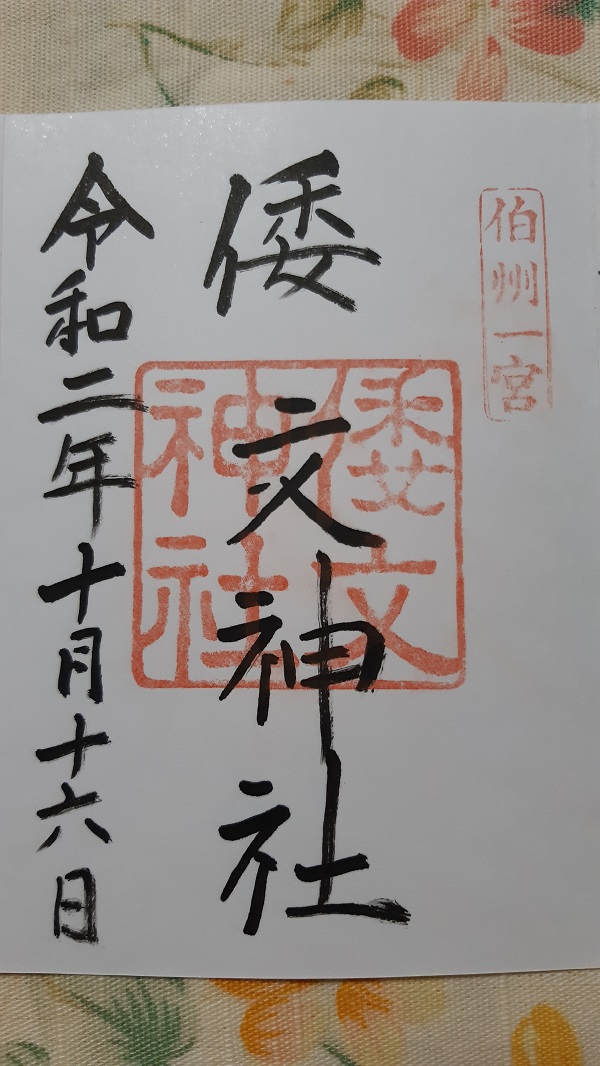 伯州一宮
倭文神社
倭文
神社
令和二年十月十六日